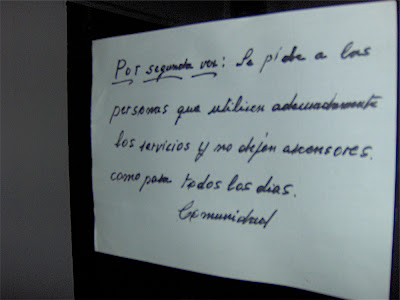 Por segunda vez: Se pide a las
personas que utilicen adecuadamente
los servicios y no dejen ascensores.
como pasa todos los dias.
Comunidad